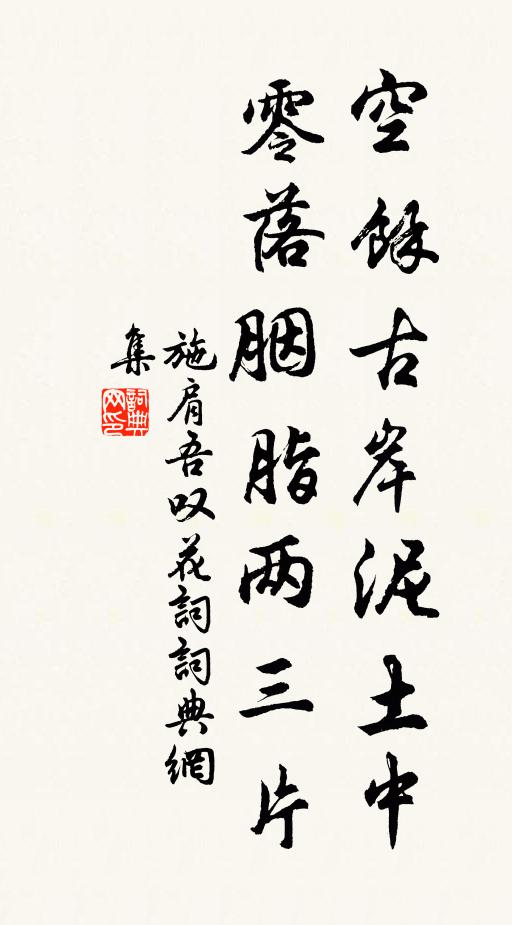 空餘古岸泥土中
零落胭脂两三片
施肩吾叹花詞詞典網
集
詞典
网印